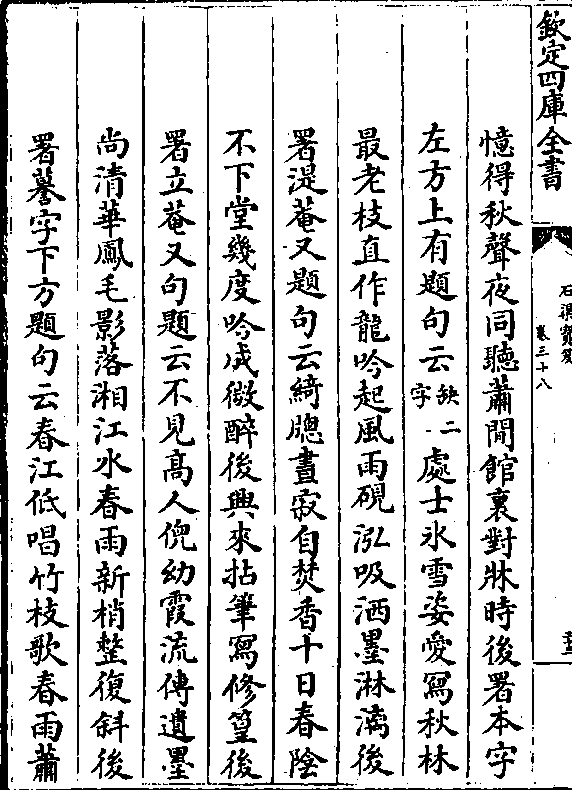 欽定四庫全書
石渠寶笈
卷三十八
憶得秋聲夜同聽蕭閒館裏對牀時後署本字
左方上有題句云缺二字處士氷雪姿愛寫秋林
最老枝直作龍吟起風雨硯泓吸洒墨淋漓後
署湜菴又題句云綺牎晝寂自焚香十日春陰
不下堂幾度吟成微醉後興來拈筆寫修篁後
署立菴又句題云不見髙人倪幼霞流傳遺墨
尚清華鳳毛影落湘江水春雨新梢整復斜後
署謩字下方題句云春江低唱竹枝歌春雨蕭